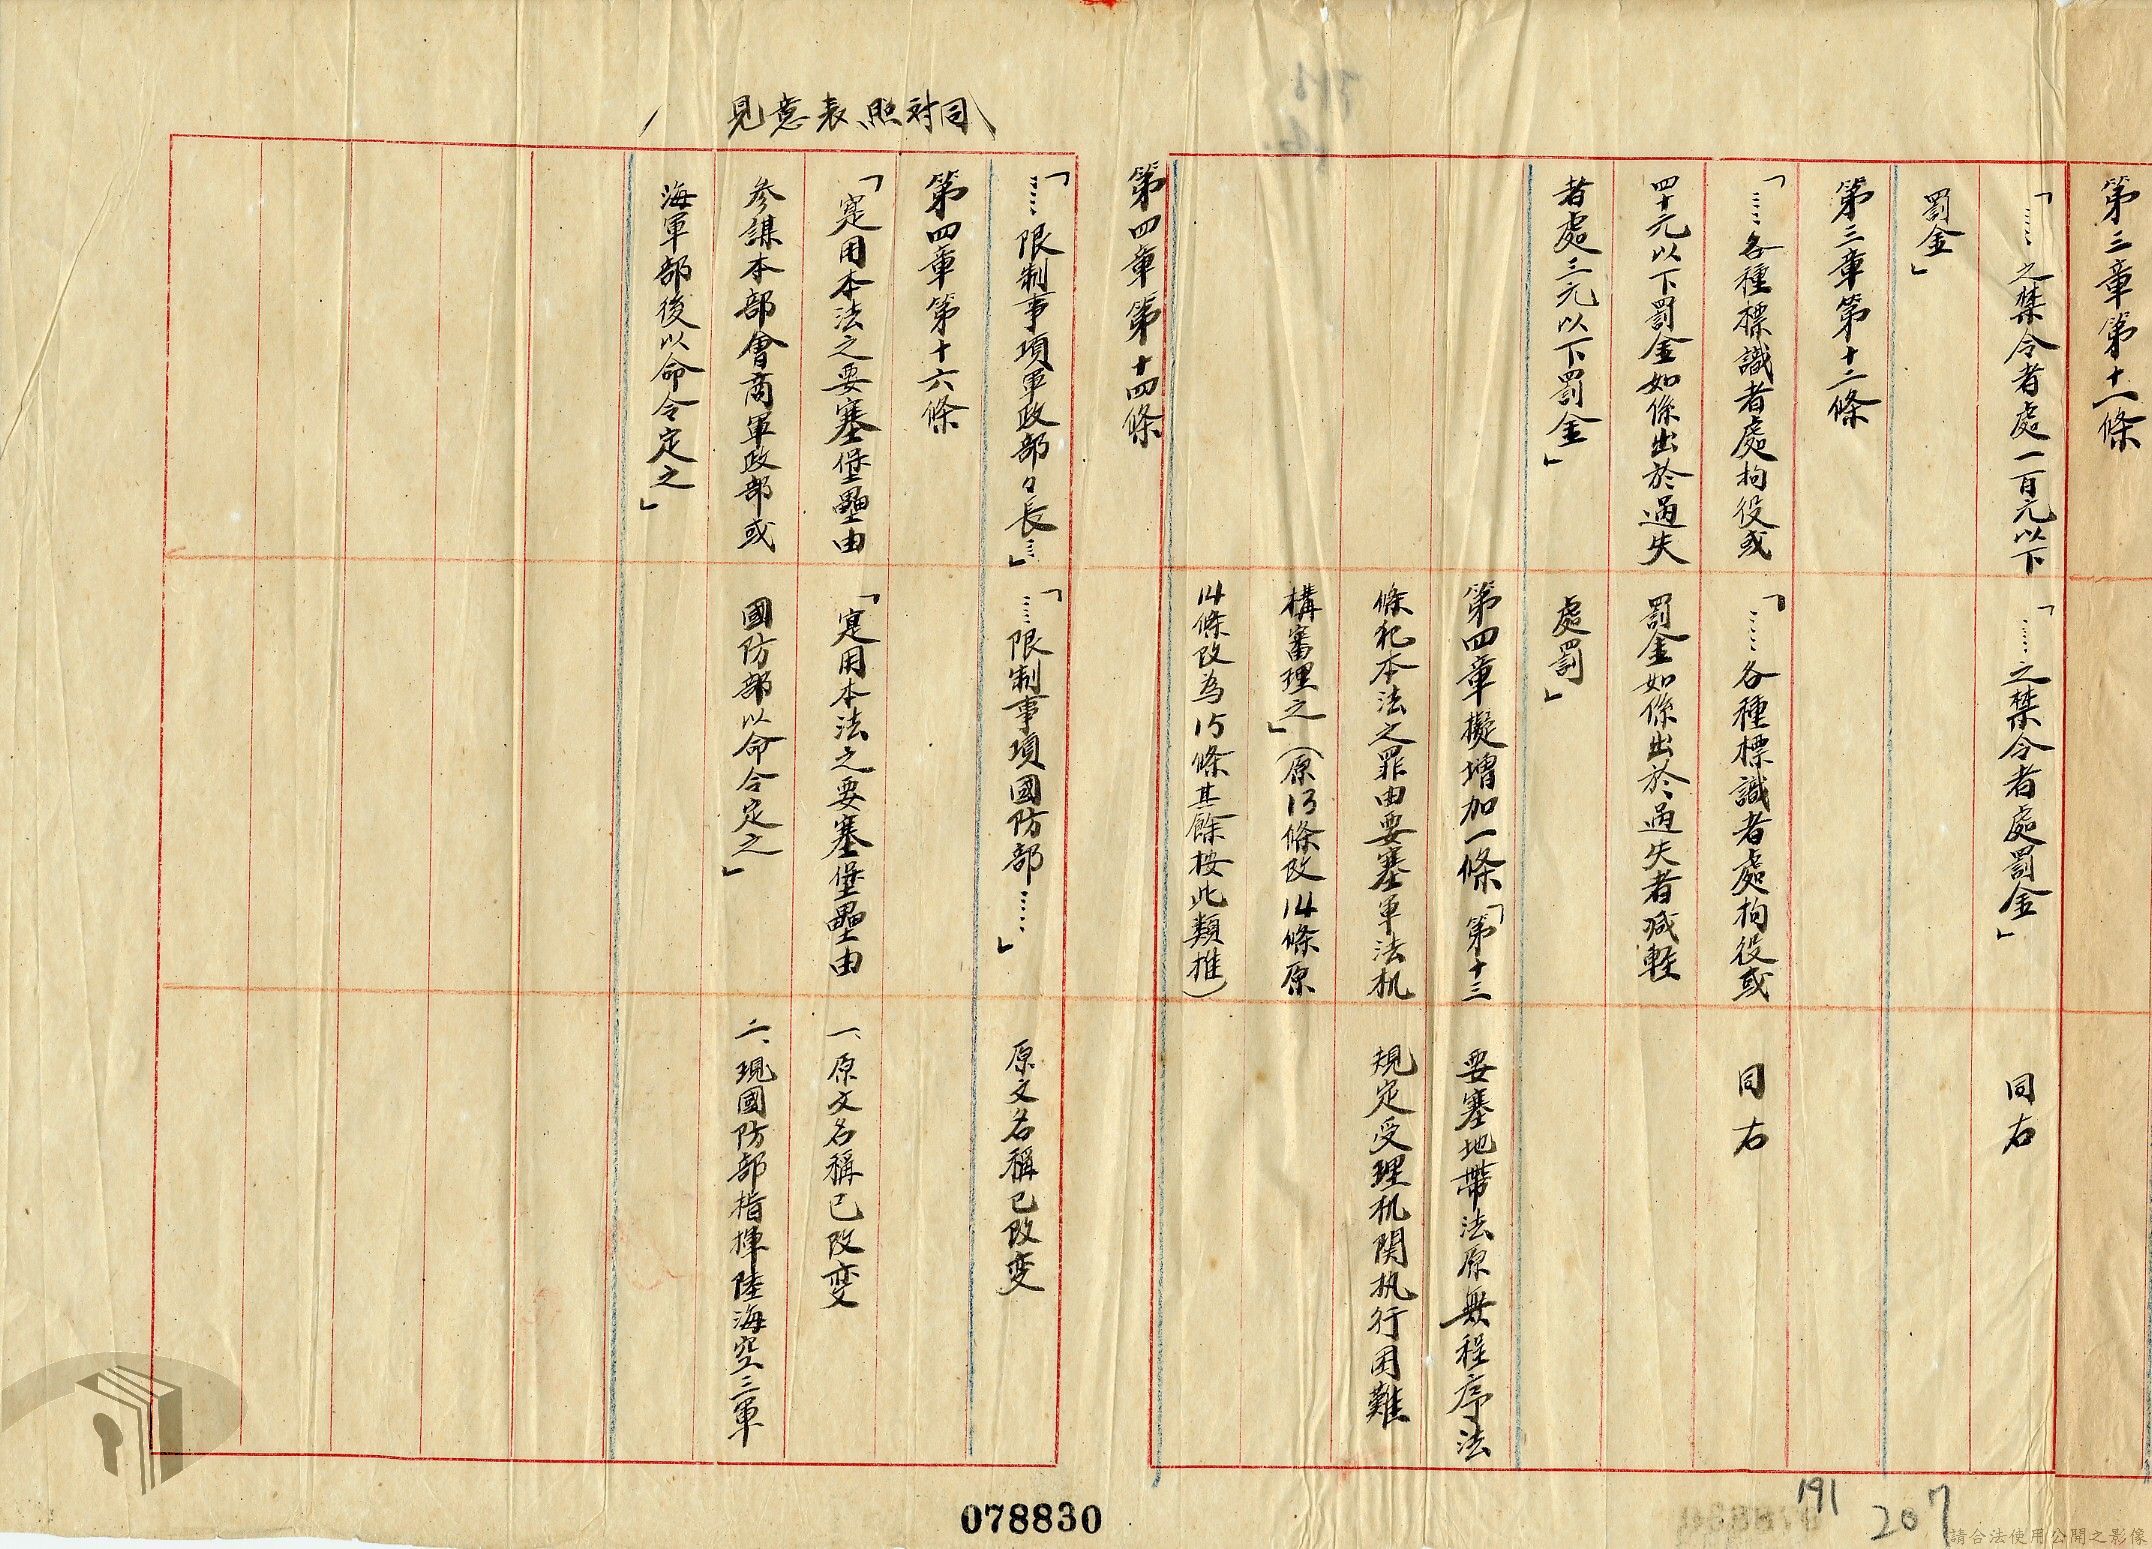 第三章第十一條
「……之禁令者處一百元以下
罰金」
「……之禁令者處罰金」
同右
第三章第十二條
「……各種標識者處拘役或
四十元以下罰金如係出於過失
者處三元以下罰金」
「……各種標識者處拘役或
罰金如係出於過失者减輕
處罰」
同右
第四章擬增加一條「第十三
條犯本法之罪由要塞軍法机
構審理之」（原13條改14條原
14條改為15條其餘按此類推）
要塞地帶法原無程序法
規定受理机関执行困難
（同对照表意見）
第四章第十四條
「……限制事項軍政部々長……」
「……限制事項國防部……」
原文名稱已改变
第四章第十六條
「寔用本法之要塞堡壘由
參謀本部會商軍政部或
海軍部後以命令定之」
「寔用本法之要塞堡壘由
國防部以命令定之」
一、原文名稱已改变
二、現國防部指揮陸海空三軍
078830
191
207
請合法使用公開之影像